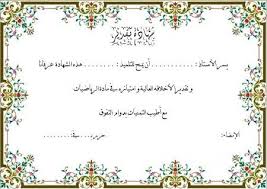 شهادة تقدير
يسر الأستاذ: .......... أن يمنح للتلميذ: .......... هذه الشهادة عرفاناً
و تقديراً لأخلاقه العالية و امتيازه في مادة الرياضيات
مع أطيب التمنيات بدوام التفوق
حرر بـ: .......... الإمضاء: